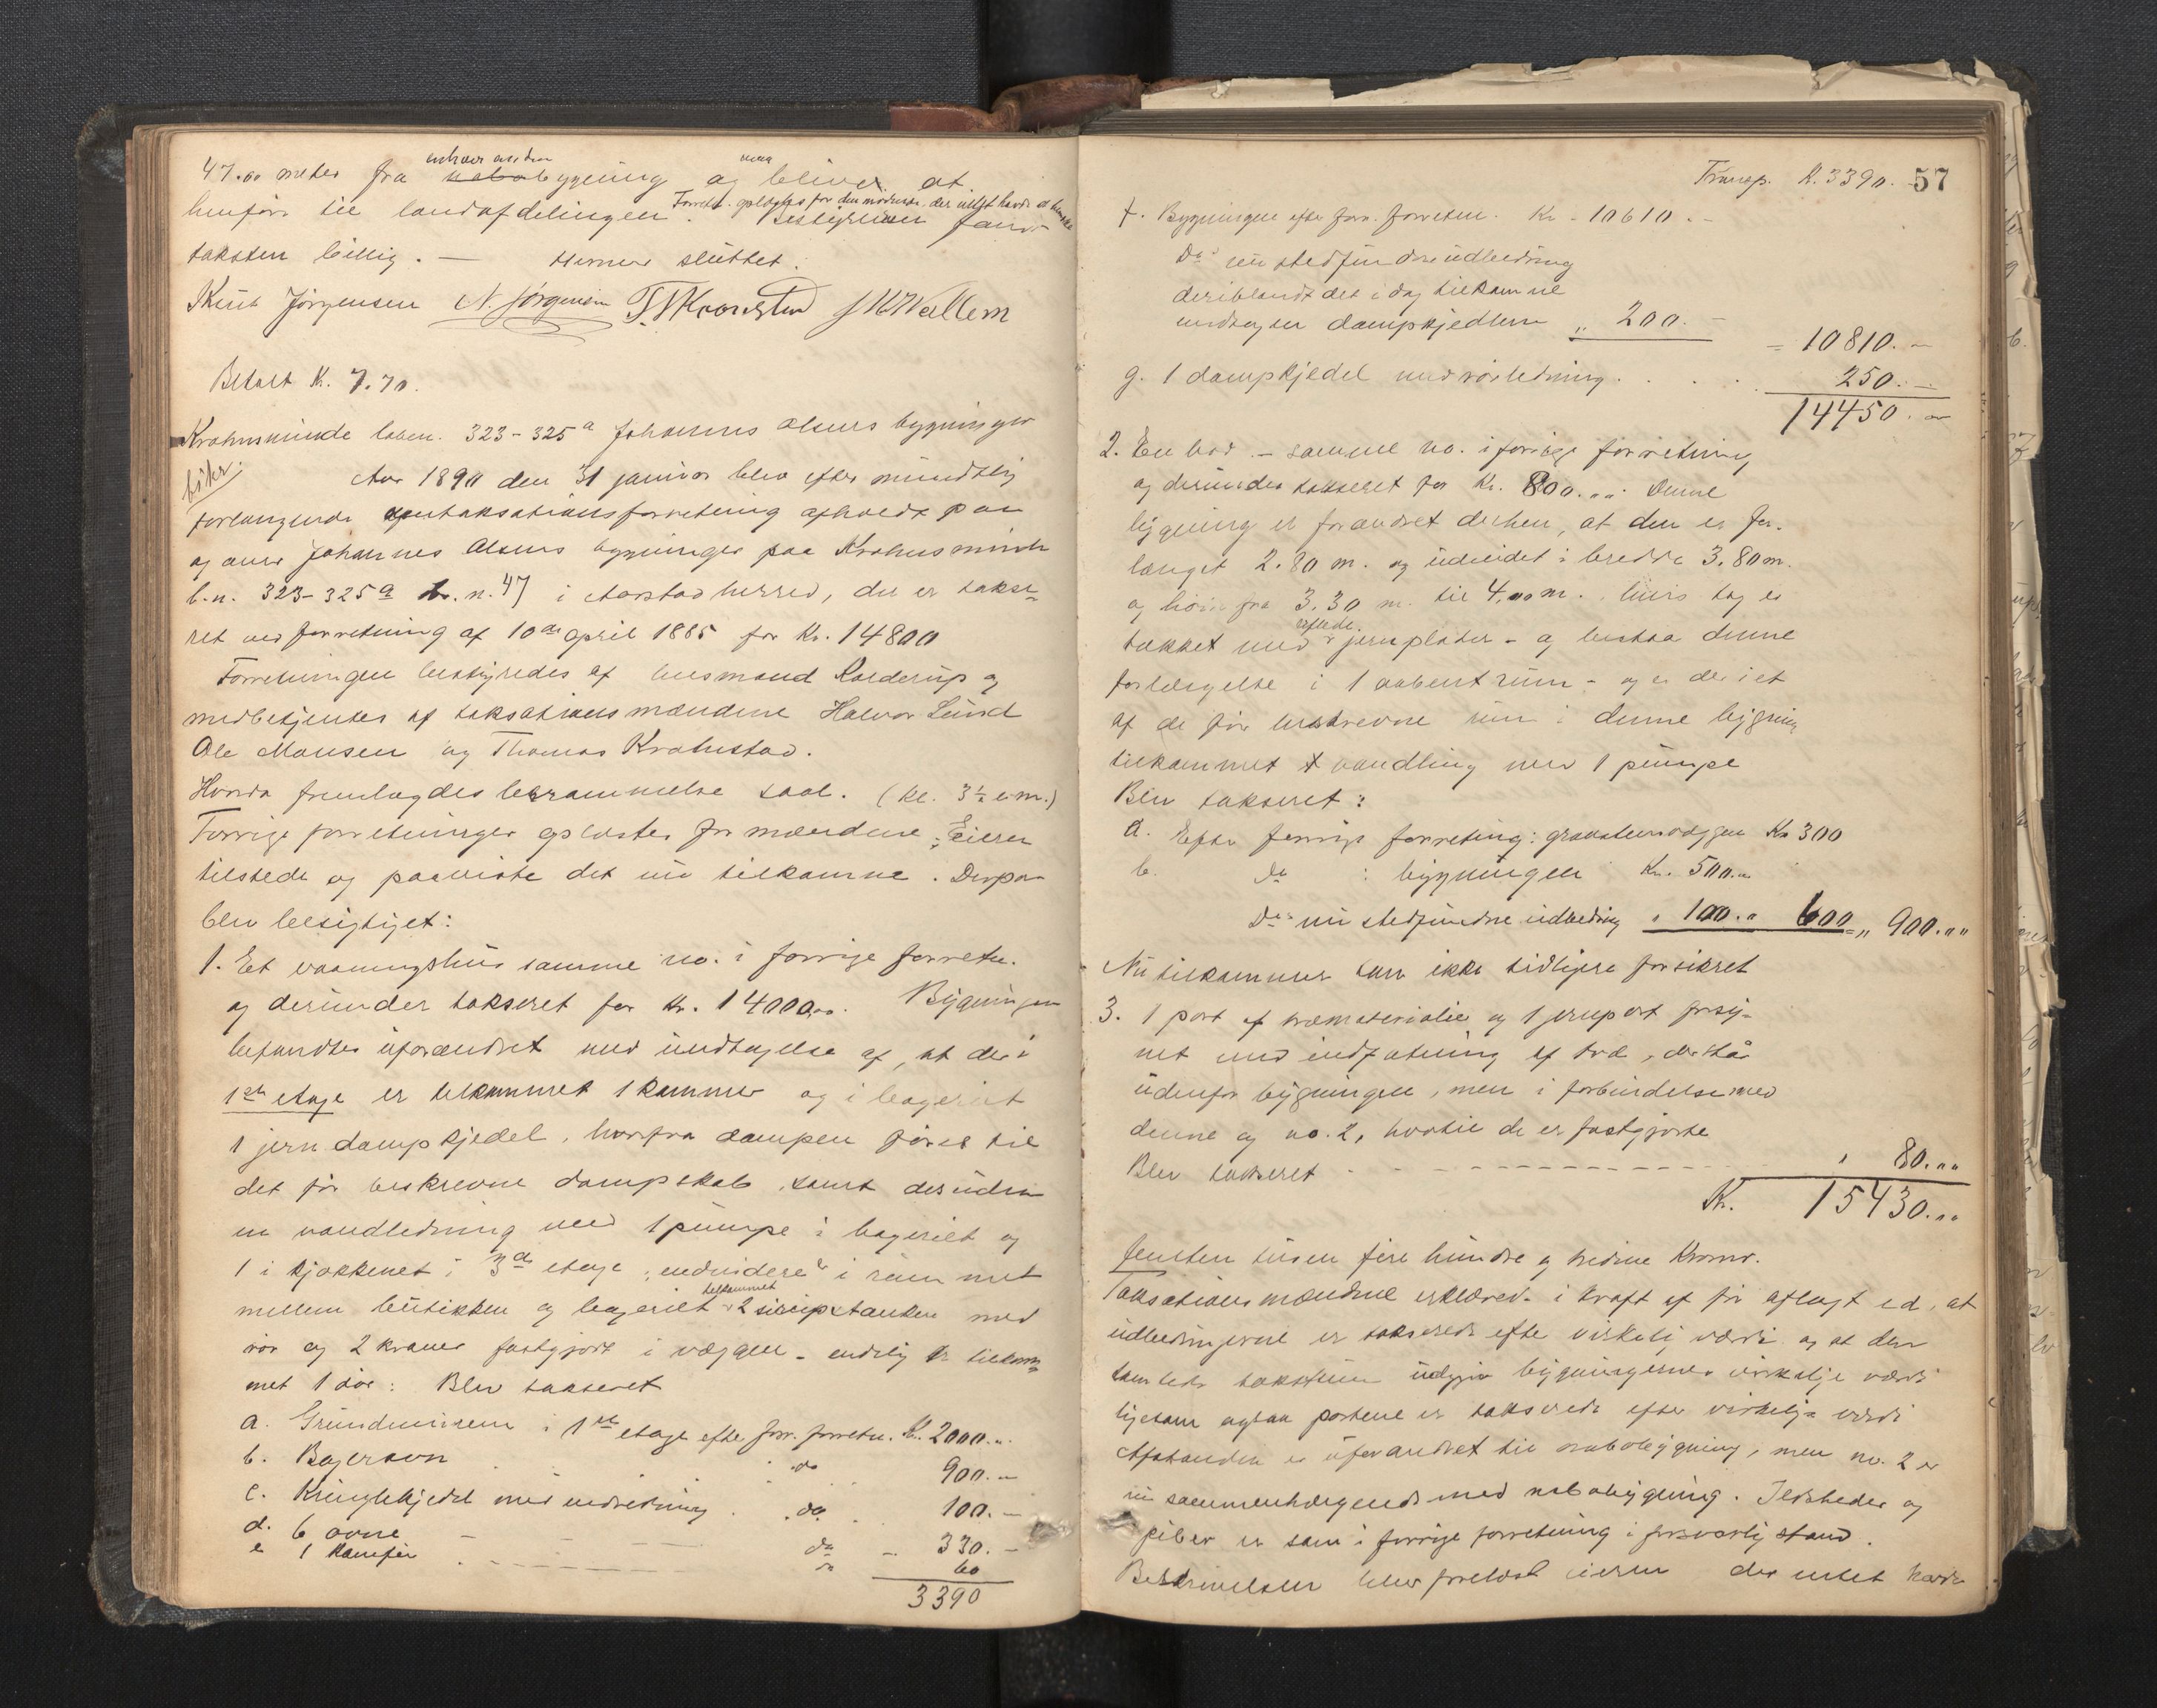 47.00 meter fra enhver anden bygning og maa blive at
henføre til landafdelingen. Forretn. oplæstes for den mødende, der intet havde at bemærke Bestyreren fandt
taksten billig. — Hermed sluttet.
Knut Jørgensen N. Jørgensen T. Kronstad J K Wallem
Betalt Kr. 7.70.
Krohnsminde løben. 323-325 a Johannes Olsens bygninger
Aar 1890 den 31 januar blev efter mundtlig
forlangende omtaksationsforretning afholdt paa
og over Johannes Olsens bygninger paa Krohnsminde
b.n. 323-325 a b.n. 47 i Aarstad herred, der er takse-
ret ved forretning af 10de april 1885 for Kr. 14800
Forretningen bestyredes af lensmand Rolderup og
medbetjentes af taksationsmændene Halvor Lund
Ole Monsen og Thomas Krohnstad.
Hvorda fremlagdes berammelse saal. (kl. 3½ em.)
Forrige forretninger oplæstes for mændene; Eieren
tilstede og paaviste det nu tilkomne. Derpaa
blev besigtiget:
1. Et vaaningshus samme no. i forrige forretn.
og derunder takseret for Kr. 14000.00. Bygningen
befandtes uforandret med undtagelse af, at der i
1ste etage er tilkommet 1 kammer og i bageriet
1 jern dampkjedel, hvorfra dampen føres til
det før beskrevne dampskab, samt desuden
en vandledning med 1 pumpe i bageriet og
1 i kjøkkenet i 3de etage, endvidere i rummet
mellem butikken og bageriet tilkommet 2 siruptanker med
rør og 2 kraner fastgjort i væggen - endelig er tilkom-
met 1 dør: Blev takseret
a. Grundmuren i 1ste etage efter forr. forretn. Kr. 2000.00
b. Bagerovn do 900.—
c. Kringlekjedel med indretning do 100.—
d. 6 ovne do - 330.—
e 1 komfur do 60
3390
Transp. K. 3390.- 57
f. Bygningen efter forr. forretn. Kr - 10610.-
Do nu stedfundne udbedring
deriblandt det i dag tilkomne
undtagen dampkjedlen " 200.-
= 10810.-
g. 1 dampkjedel med rørledning . . . . 250.-
14450.00
2. En bod - samme no. i forrige forretning
og derunder takseret for Kr. 800.00. Denne
bygning er forandret derhen, at den er for-
længet 2.80 m. og udvidet i bredde 3.80 m.
og høide fra 3.30 m. til 4.00 m., hvis tag er
tækket med riflede jernplader - og bestaa denne
forlængelse i 1 aabent rum - og er der i et
af de før beskrevne rum i denne bygning
tilkommet 1 vandledng med 1 pumpe
Blev takseret:
a. Efter forrige forretning: graastensvæggen Kr 300
b. do : bygningen Kr. 500.00
Do nu stedfundne udbedring " 100.00 600 = " 900.00
Nu tilkommer som ikke tidligere forsikret
3. 1 port af træmaterialier og 1 jernport forsy-
net med indfatning af træ, der står
udenfor bygningen, men i forbindelse med
denne og no. 2, hvortil de er fastgjorte
Blev takseret - - - - - - - - - - - " 80.00
Kr. 15430.00
femten tusen fire hundre og tredive Kroner.
Taksationsmændene erklærede i kraft af før aflagt ed, at
udbedringerne er takserede efter virkelig værdi og at den
samlede takstsum udgjør bygningernes virkelige værdi
ligesom ogsaa portene er takserede efter virkelig værdi
Afstanden er uforandret til nabobygning, men no. 2 er
nu sammenhængende med nabobygning. Ildsteder og
piber er som i forrige forretning i forsvarlig stand.
Beskrivelsen blev forelæst eieren der intet havde